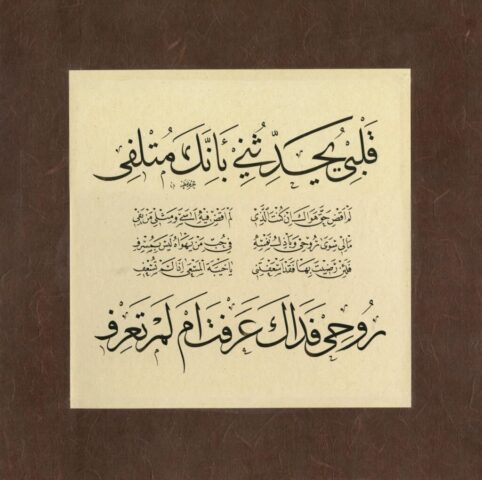 قَلْبِي يُحَدِّثُنِي بِأَنَّكَ مُتْلِفِي
لم أقض حق هواك إن كنت الذي لم أقض فيه أسى ومثلي من يفي
ما لي سوى روحي وباذل نفسه في حب من يهواه ليس بمسرف
فلئن رضيت بها فقد أسعفتني يا خيبة المسعى إذا لم تسعف
رُوحِي فِدَاكَ عَرَفْتَ أَمْ لَمْ تَعْرِفِ